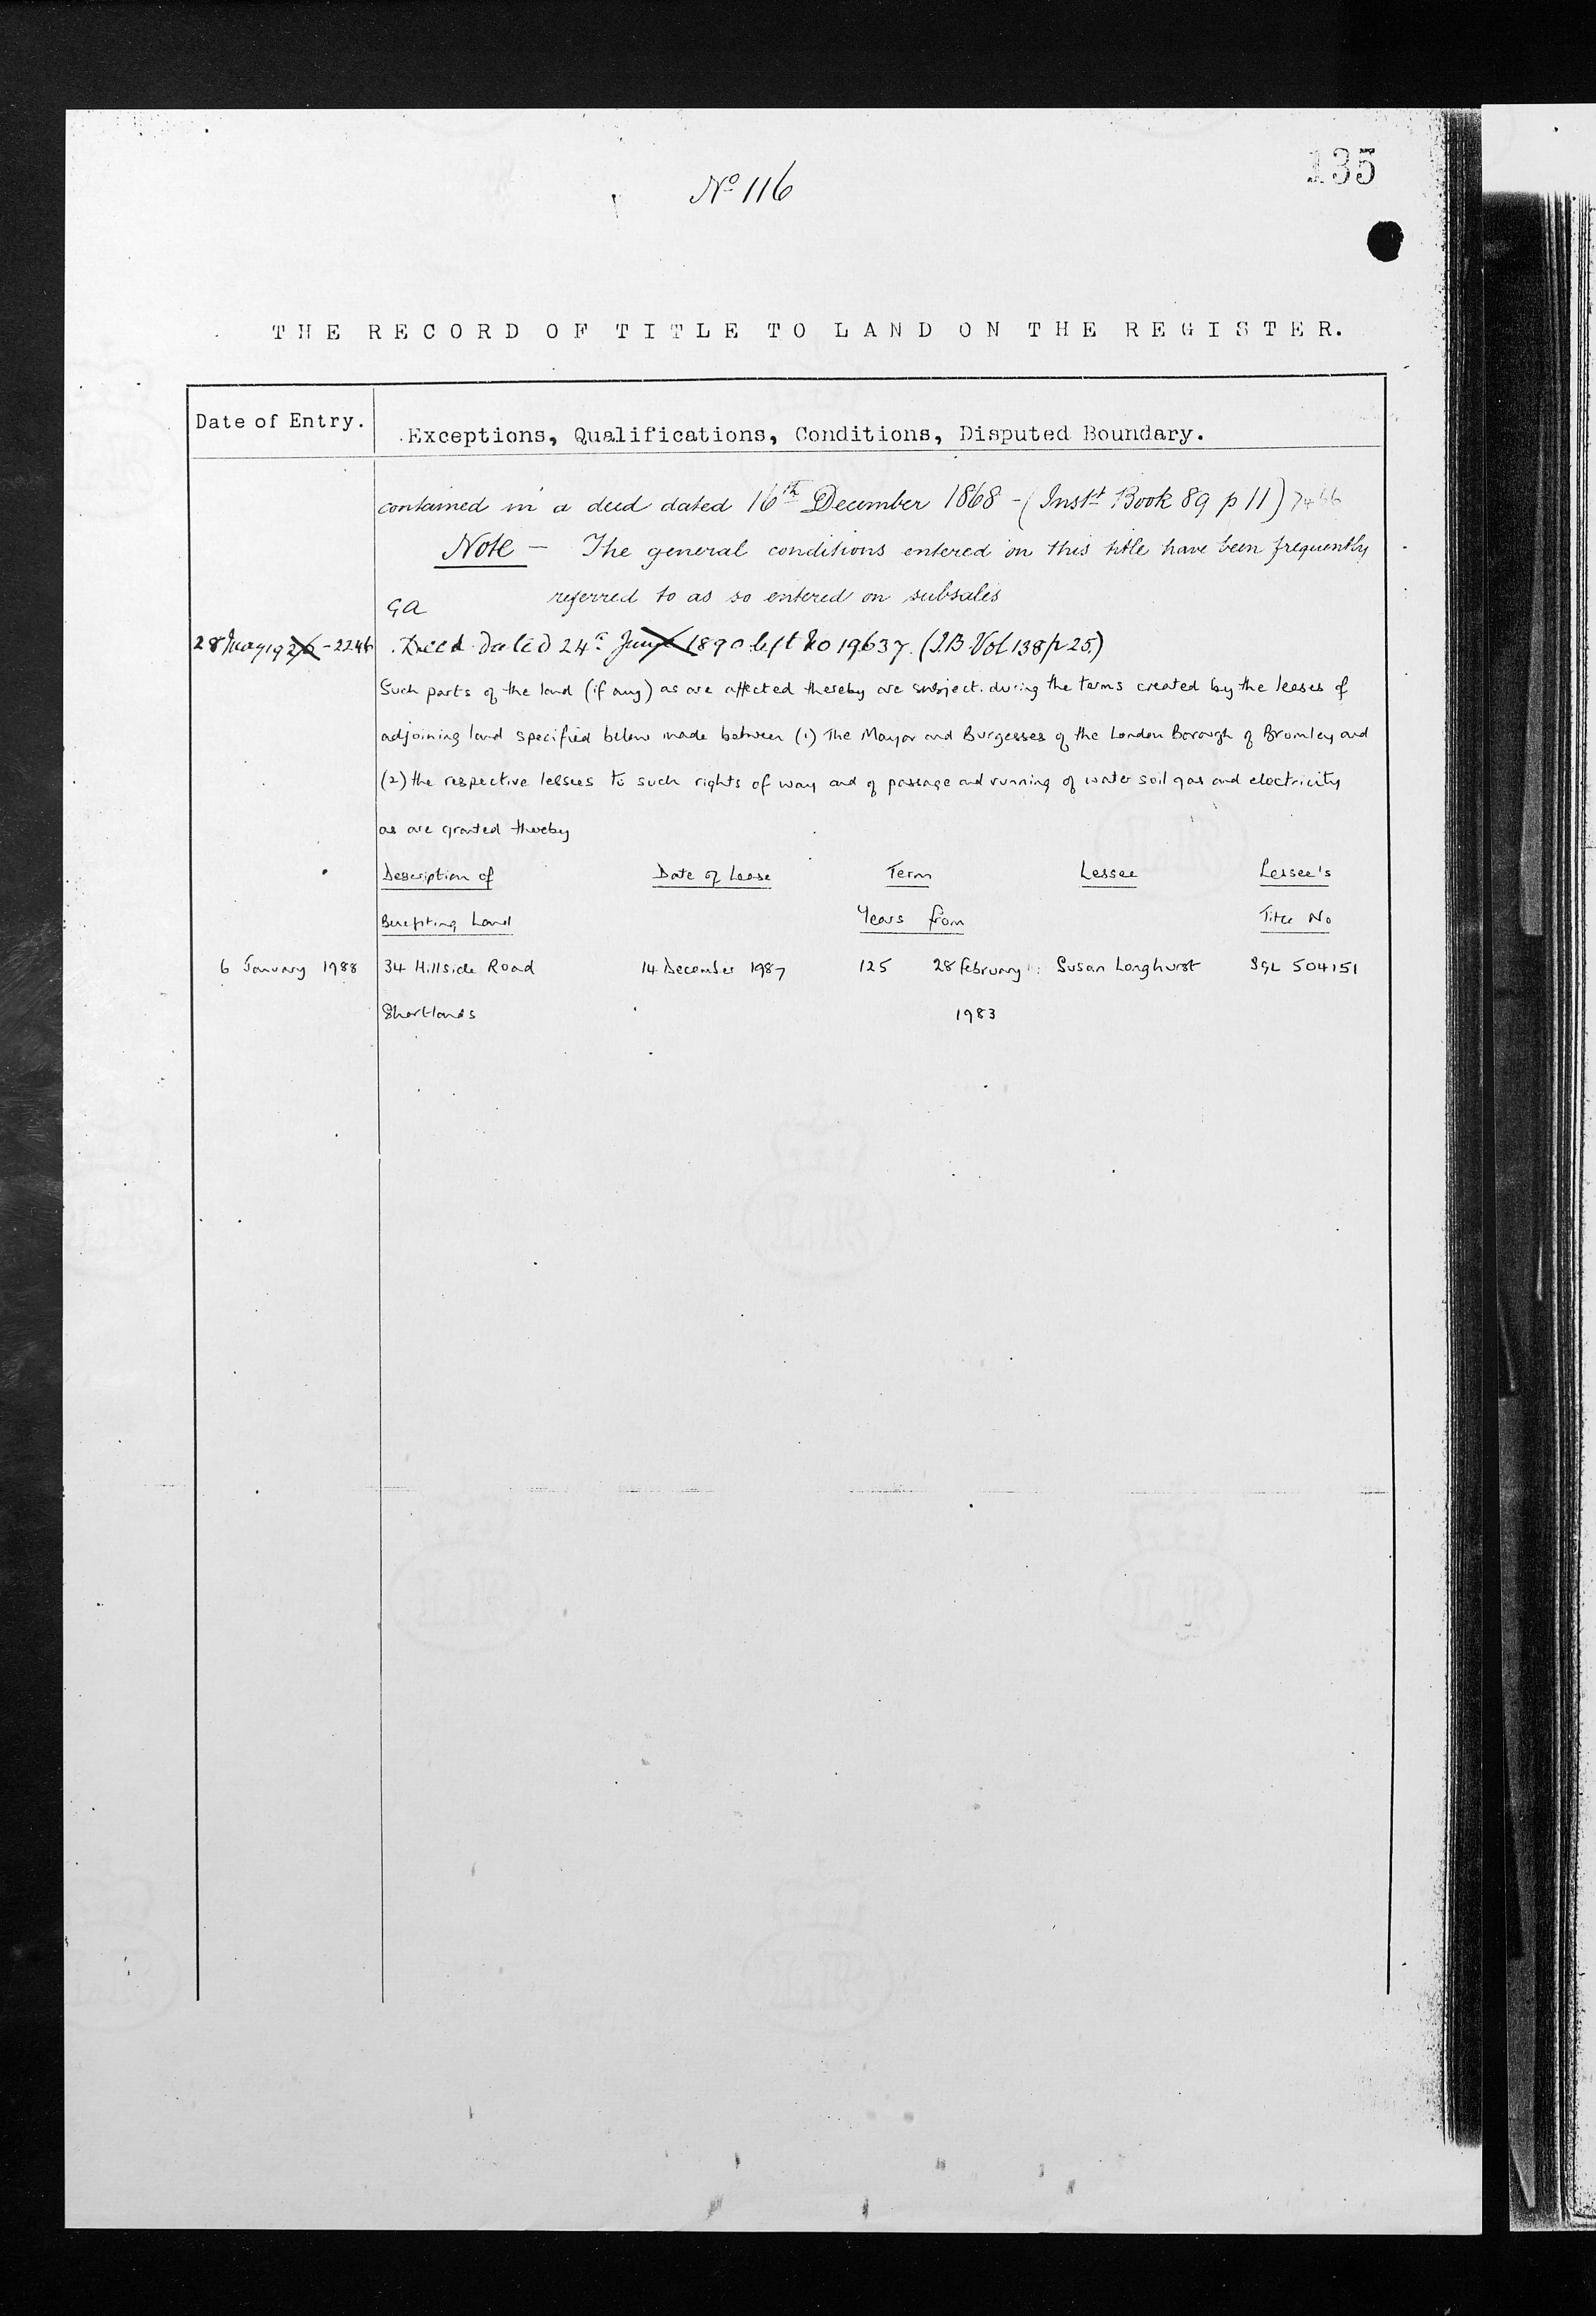 135
No 116
THE RECORD OF TITLE TO LAND ON THE REGISTER.
Date of Entry.
Exceptions, Qualifications, Conditions, Disputed Boundary.
contained in a deed dated 16th December 1868 - (Inst Book 89 p 11) 7466
Note - The general conditions entered on this title have been frequently
referred to as so entered on subsales
GA
28 May 19 - 2246 Deed dated 24 1890 left No 19637. (I.B. Vol 138 p 25.)
Such parts of the land (if any) as are affected thereby are subject during the terms created by the leases of
adjoining land specified below made between (1) The Mayor and Burgesses of the London Borough of Bromley and
(2) the respective lessees to such rights of way and of passage and running of water soil gas and electricity
as are granted thereby
Description of Date of Lease Term Lessee Lessee's
Benefiting Land Years from Title No
6 January 1988 34 Hillside Road 14 December 1987 125 28 February Susan Longhurst SGL 504151
Shortlands 1983